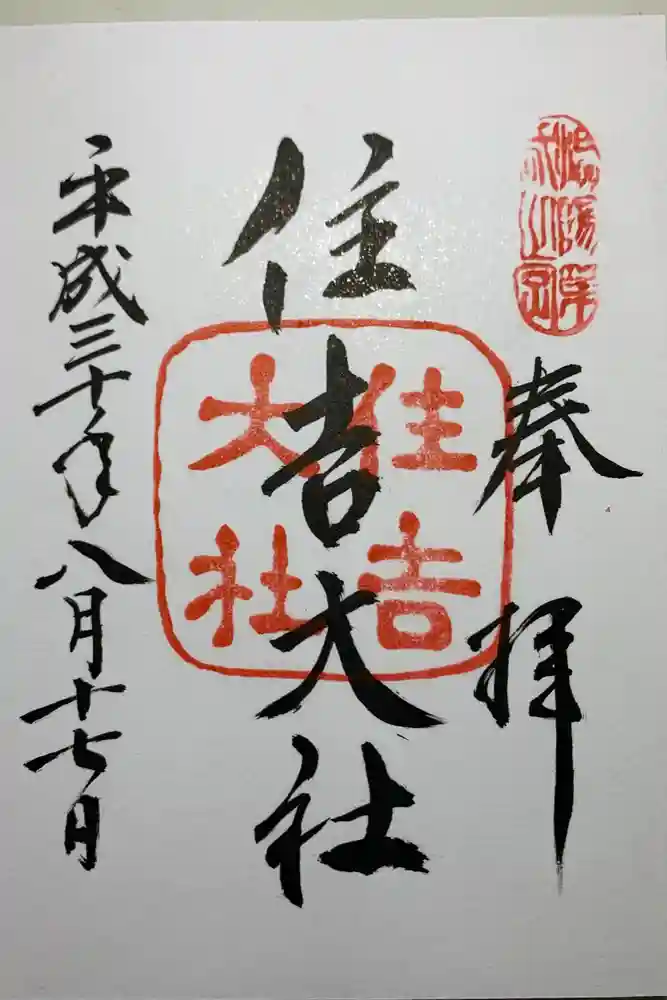 奉拝
住吉大社
住吉
大社
平成三十年八月十七日